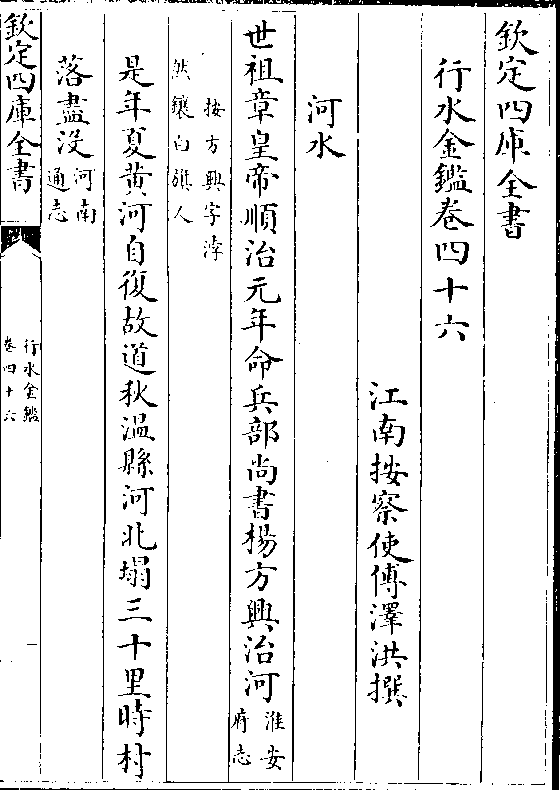 欽定四庫全書
行水金鑑卷四十六
江南按察使傅澤洪撰
河水
世祖章皇帝順治元年命兵部尚書楊方興治河淮安府志
按方興字浡
然鑲白旗人
是年夏黄河自復故道秋溫縣河北塌三十里時村
落盡没河南通志
欽定四庫全書
行水金鑑
卷四十六
一